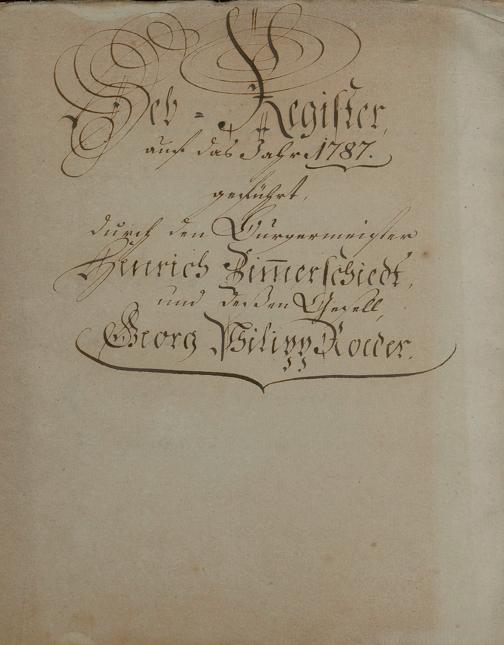 Heb-Register,
auf das Jahr 1787.
geführt,
durch den Burgermeister
Henrich Zimerschiedt,
und deßen Gesell,
Georg Philipp Roeder.